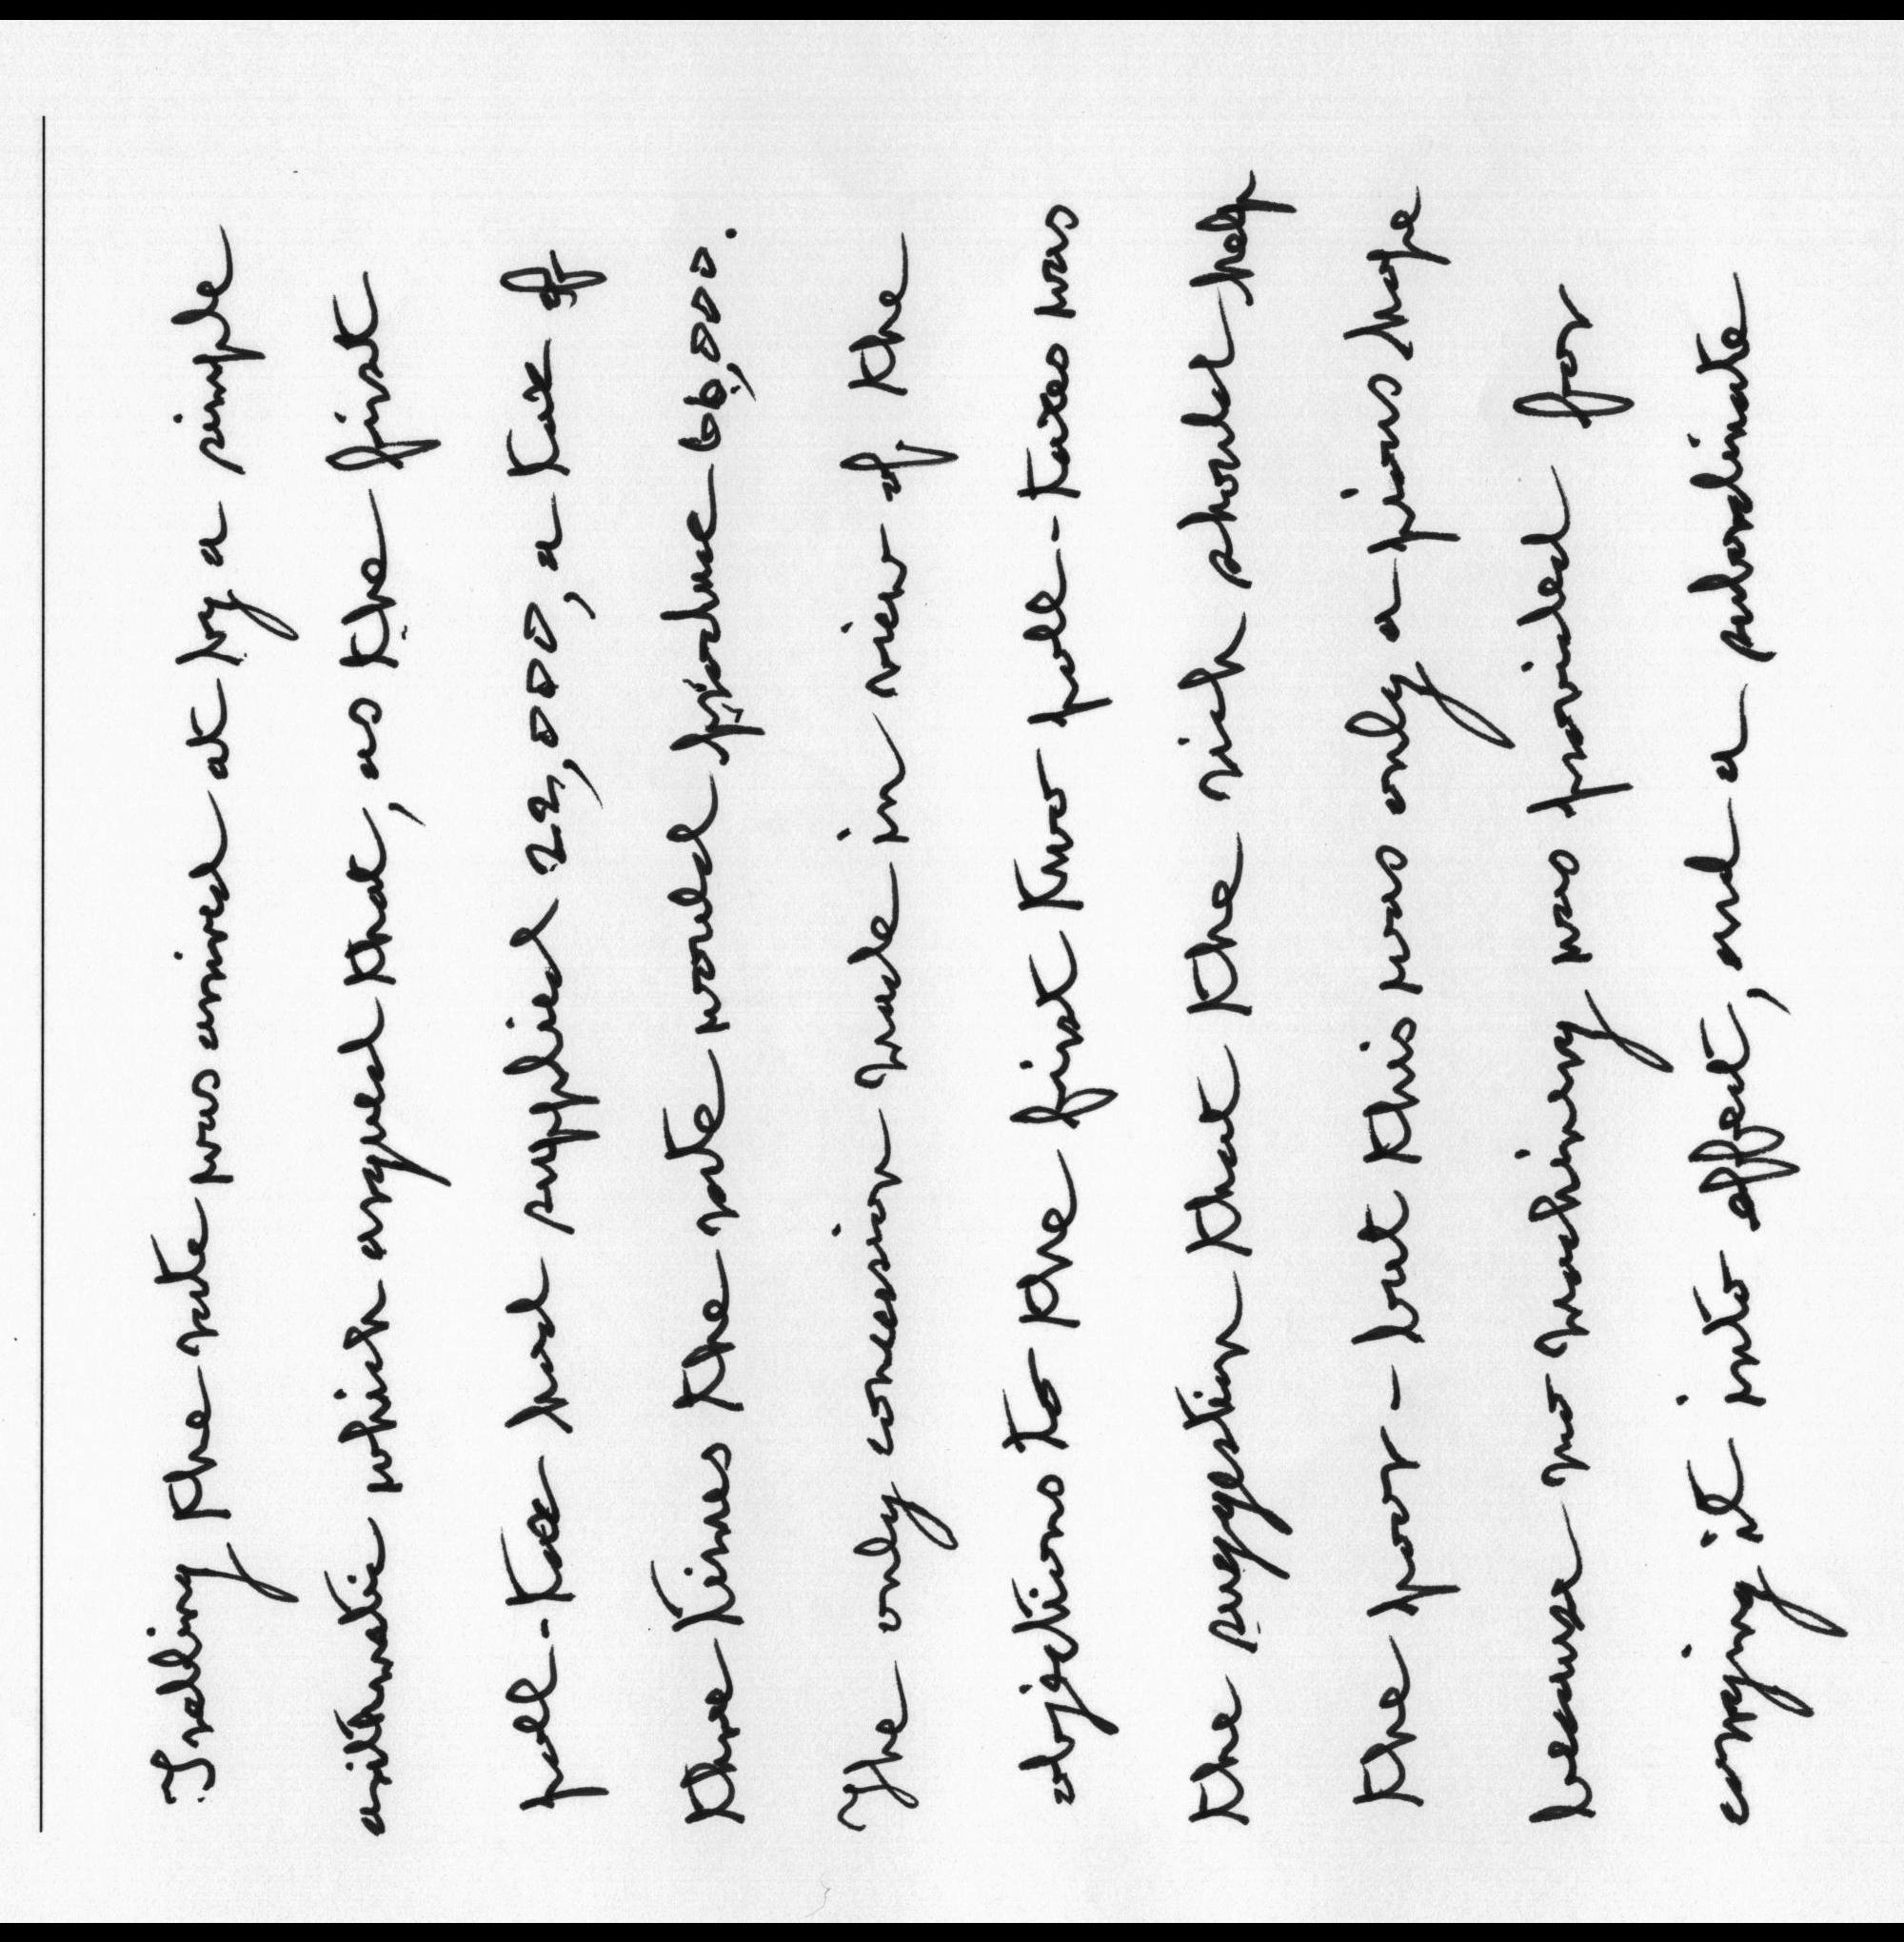 Trebling the rate was arrived at by a simple
arithmetic which argued that, as the first
poll-tax had supplied 22,000, a tax of
three times the rate would produce 66,000.
The only concession made in view of the
objections to the first two poll-taxes was
the suggestion that the rich should help
the poor - but this was only a pious hope
because no machinery was provided for
carrying it into effect, and a subordinate